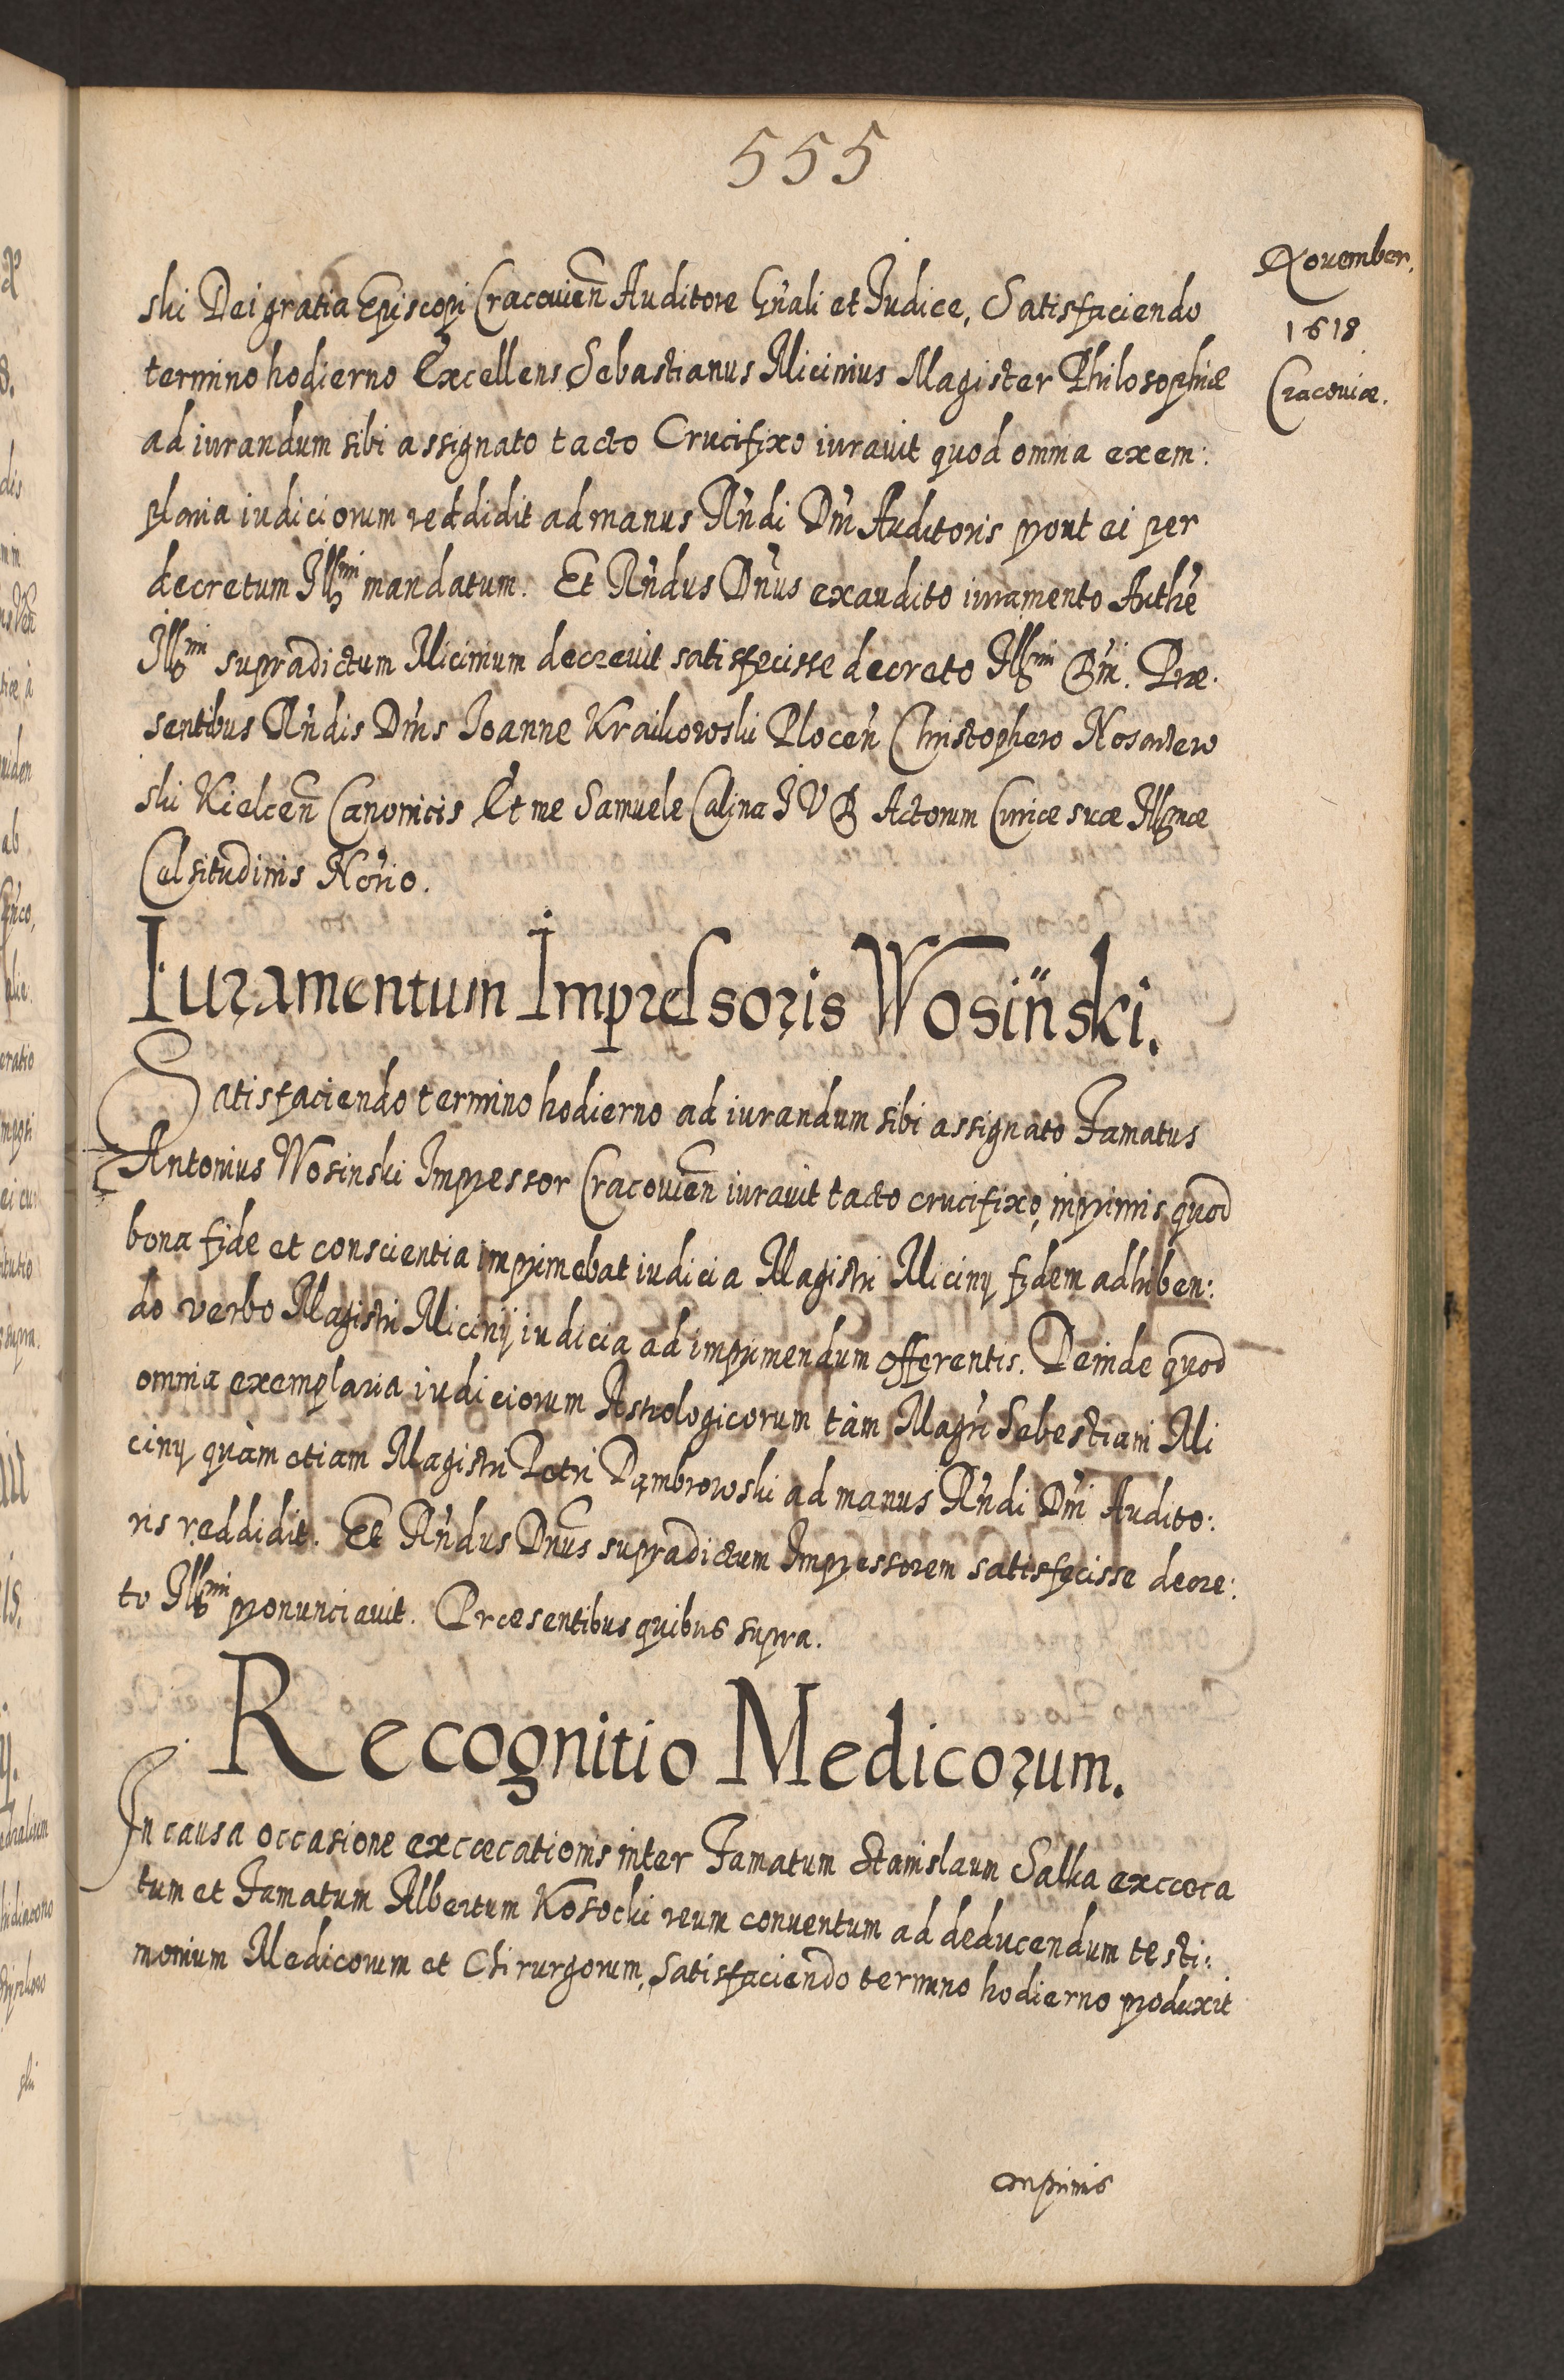 555
November.
1618
Cracouiæ.
ski Dei gratia Episcopi Cracouień Auditore Gñali et Judice, Satisfaciendo
termino hodierno Excellens Sebastianus Micinius Magister Philosophiæ
ad iurandum sibi assignato tacto Crucifixo iurauit quod omnia exem:
plaria iudiciorum reddidit ad manus Rñdi Dñi Auditoris prout ei per
decretum Illmi mandatum. Et Rñdus Dñus exaudito iuramento Aucthe
Illmi supradictum Micinium decreuit satisfecisse decreto Illmi Dñi. Præ:
sentibus Rñdis Dñis Ioanne Kraikowski Ploceñ Christophero Nosarzew
ski Kielceñ Canonicis Et me Samuele Calina J V D Actorum Curiæ suæ Illmæ
Celsitudinis Noŕio.
Iuramentum Impressoris Wosiński.
Satisfaciendo termino hodierno ad iurandum sibi assignato Famatus
Antonius Wosinski Impressor Cracouień iurauit tacto crucifixo, inprimis quod
bona fide et conscientia imprimebat iudicia Magistri Micinij fidem adhiben:
do verbo Magistri Micinij iudicia ad imprimendum offerentis. Deinde quod
omnia exemplaria iudiciorum Astrologicorum tàm Magri Sebestiani Mi
cinij quàm etiam Magistri Petri Dąmbrowski ad manus Rñdi Dñi Audito:
ris reddidit. Et Rñdus Dñus supradictum Impressorem satisfecisse decre:
to Illmi pronunciauit. Præsentibus quibus supra.
Recognitio Medicorum.
In causa occasione excæcationis inter Famatum Stanislaum Salka excœca
tum et Famatum Albertum Kosocki reum conuentum ad deducendum testi:
monium Medicorum et Chirurgorum, Satisfaciendo termino hodierno produxit